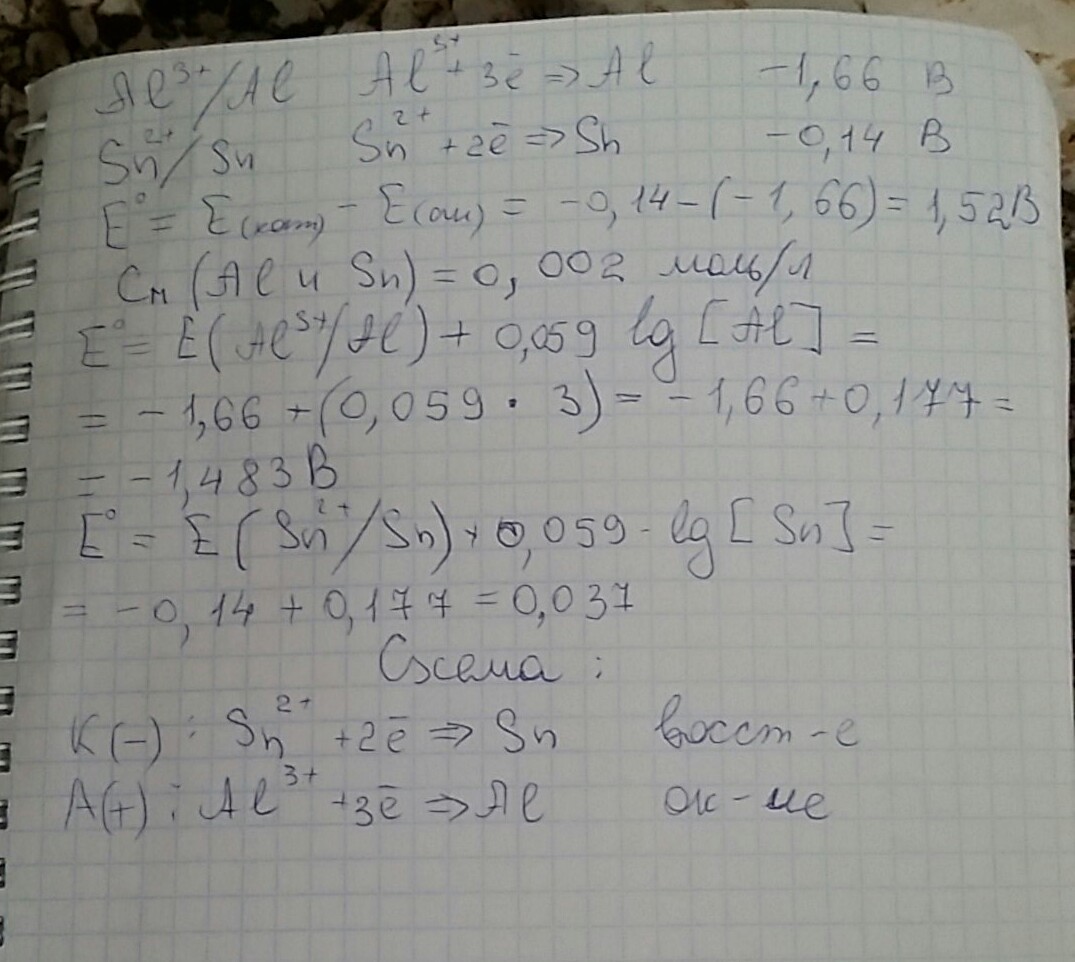 Al³⁺/Al Al³⁺ + 3ē ⇒ Al -1,66 В
Sn²⁺/Sn Sn²⁺ + 2ē ⇒ Sn -0,14 В
E° = E(кат) - E(ан) = -0,14-(-1,66) = 1,52В
Cм (Al и Sn) = 0,002 моль/л
E° = E(Al³⁺/Al) + 0,059 lg [Al] =
= -1,66 + (0,059 · 3) = -1,66+0,177 =
= -1,483 В
E° = E(Sn²⁺/Sn) + 0,059 · lg [Sn] =
= -0,14 + 0,177 = 0,037
Схема :
K(-) : Sn²⁺ +2ē ⇒ Sn восст-е
A(+) : Al³⁺ +3ē ⇒ Al ок-ие